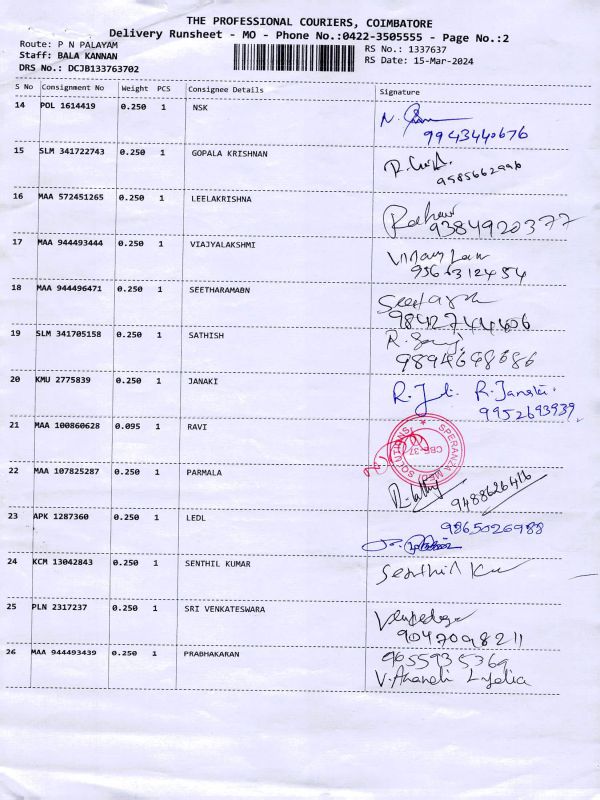 THE PROFESSIONAL COURIERS, COIMBATORE
Delivery Runsheet - MO - Phone No.:0422-3505555 - Page No.:2
Route: P N PALAYAM
RS No.: 1337637
Staff: BALA KANNAN
RS Date: 15-Mar-2024
DRS No.: DCJB133763702
S No Consignment No Weight PCS Consignee Details Signature
14 POL 1614419 0.250 1 NSK
9943440676
15 SLM 341722743 0.250 1 GOPALA KRISHNAN
16 MAA 572451265 0.250 1 LEELAKRISHNA
9384920377
17 MAA 944493444 0.250 1 VIAJYALAKSHMI
18 MAA 944496471 0.250 1 SEETHARAMABN
19 SLM 341705158 0.250 1 SATHISH
9894648686
20 KMU 2775839 0.250 1 JANAKI
R. Janaki
9952693939
21 MAA 100860628 0.095 1 RAVI
22 MAA 107825287 0.250 1 PARMALA
9488626416
23 APK 1287360 0.250 1 LEDL
9865026988
24 KCM 13042843 0.250 1 SENTHIL KUMAR
Senthil Ku
25 PLN 2317237 0.250 1 SRI VENKATESWARA
9047098211
26 MAA 944493439 0.250 1 PRABHAKARAN
9655935369
V. Anandi Lydia